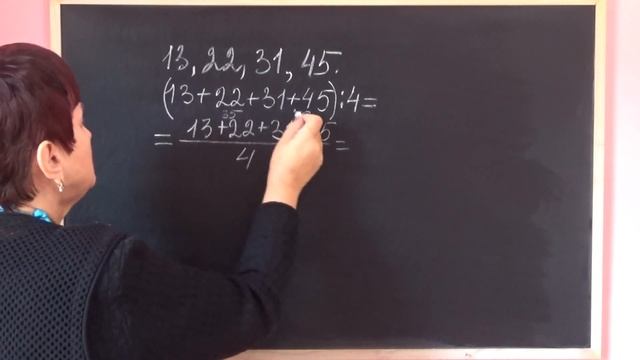 13, 22, 31, 45.
(13+22+31+45):4=
35
= 13+22+3 5 =
4